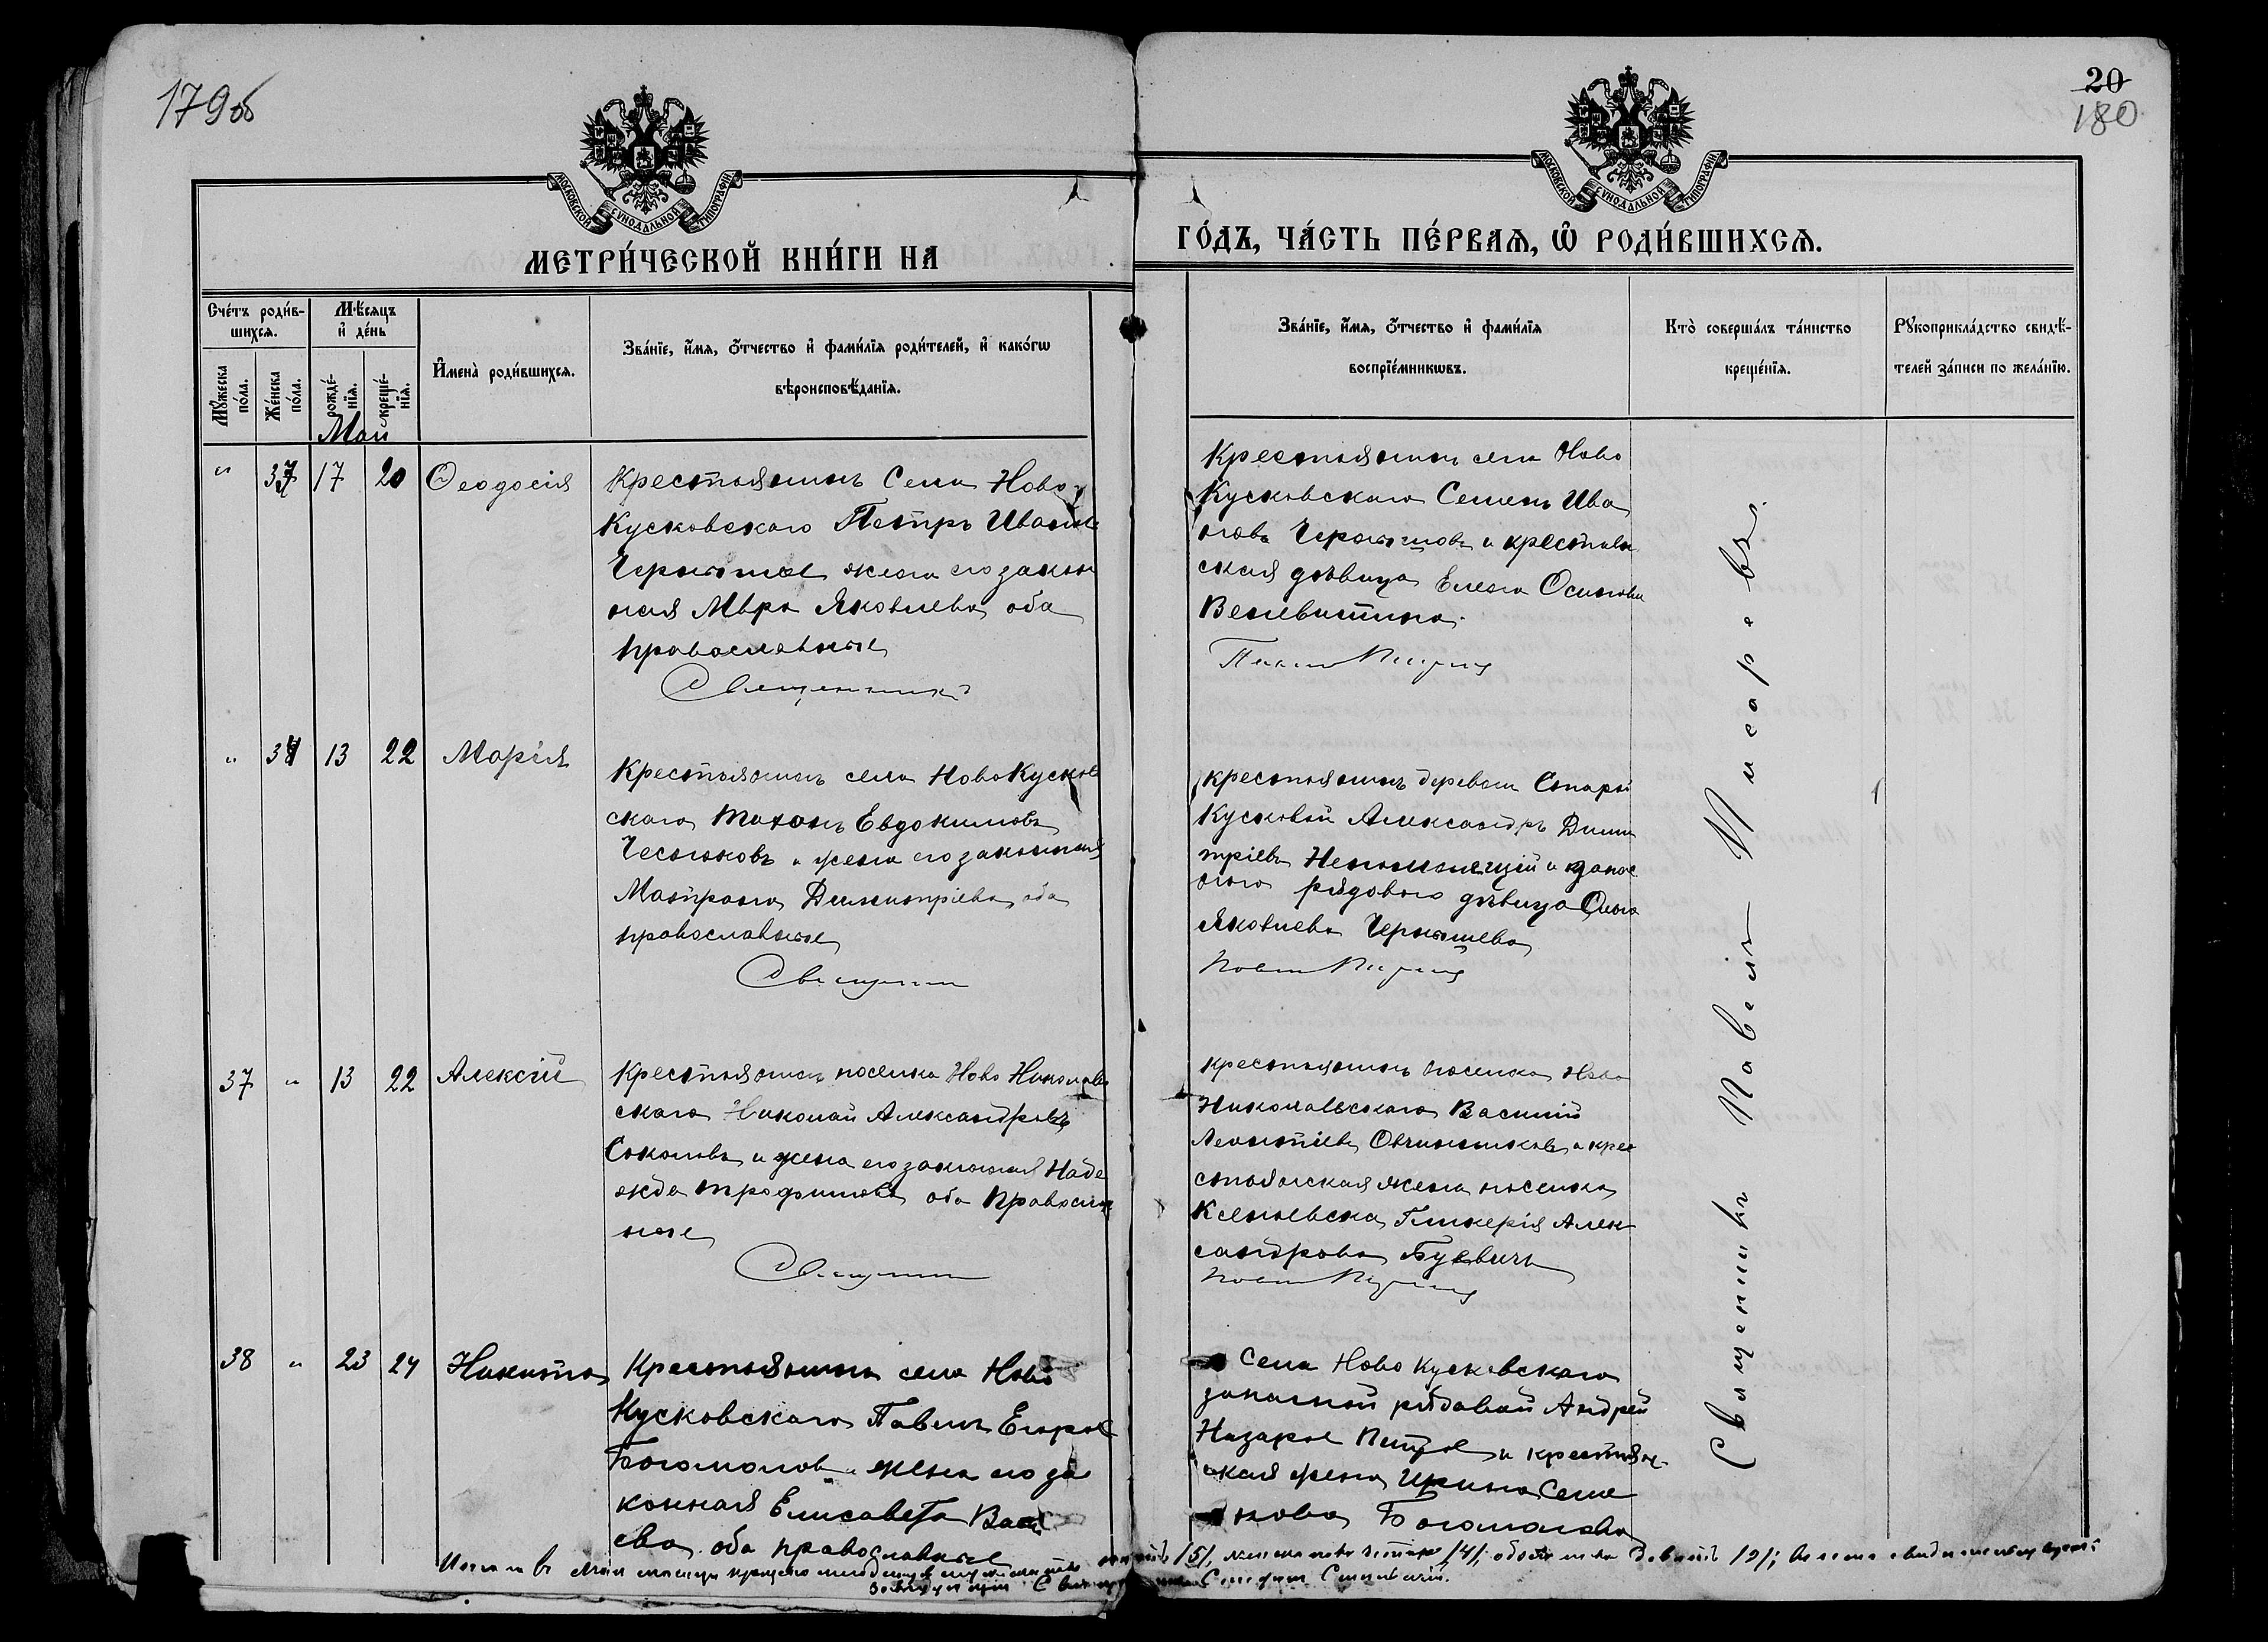 179об
20
180
МОСКОВСКОЙ СУНОДАЛЬНОЙ ТИПОГРАФІИ
МОСКОВСКОЙ СУНОДАЛЬНОЙ ТИПОГРАФІИ
МЕТРИ́ЧЕСКОЙ КНИ́ГИ НА
ГО́ДЪ, ЧА́СТЬ ПЕ́РВАѦ, Ѡ҆ РОДИ́ВШИХСѦ.
Сче́тъ роди́в-
шихсѧ.
Мꙋ́жеска по́ла.
Же́нска по́ла.
Мѣ́сѧцъ
и҆ де́нь
рожде́-
нїѧ.
креще́-
нїѧ.
И҆мена̀ роди́вшихсѧ.
Зва́нїе, и҆́мѧ, ѻ҆́тчество и҆ фами́лїѧ роди́телей, и҆ како́гѡ
вѣроисповѣ́данїѧ.
Зва́нїе, и҆́мѧ, ѻ҆́тчество и҆ фами́лїѧ
воспрїе́мникѡвъ.
Кто̀ соверша́лъ та́инство
креще́нїѧ.
Рꙋкоприкла́дство свидѣ́-
телей за́писи по жела́нїю.
Май
" 37 17 20 Ѳеодосія
Крестьянинъ Села Ново-
Кусковскаго Петръ Иванов
жена его закон
ная Яковлева оба
православные
Священникъ
Крестьянинъ села Ново
Кусковскаго Семенъ Ива
новъ Чернышовъ и крестьян
ская дѣвица Елена Осипова
Велевитина.
" 13 22 Марія
Крестьянинъ села НовоКусков
скаго Тихонъ Евдокимовъ
Чесноковъ и жена его законная
Матрона Димитріева, оба
православные
Священник
крестьянинъ деревни Старо
Кусковой Александръ Дими
тріевъ и запас
ного рядового дѣвица
Яковлева Чернышева
37 " 13 22 Алексій
Крестьянинъ поселка Ново Николаев
скаго Николай Александровъ
Соколовъ и жена его законная Наде
жда Трофимова оба Православ
ные
Священник
крестьянинъ поселка Ново
Николаевскаго Василий
Леонтіевъ Овчинниковъ и крес
стьянская жена поселка
Ксеньевска Гликерія Алек
сандрова
38 " 23 24 Никита
Крестьянинъ села Ново
Кусковскаго Павелъ Егоров
Богомолов и жена его за
конная Елисавета
ева оба православные
села Ново Кусковскаго
запасной рядовой Андрей
Назаров Петров и крестьян
ская жена Ирина Семе
нова Богомолова
Священникъ Павелъ Писаревъ